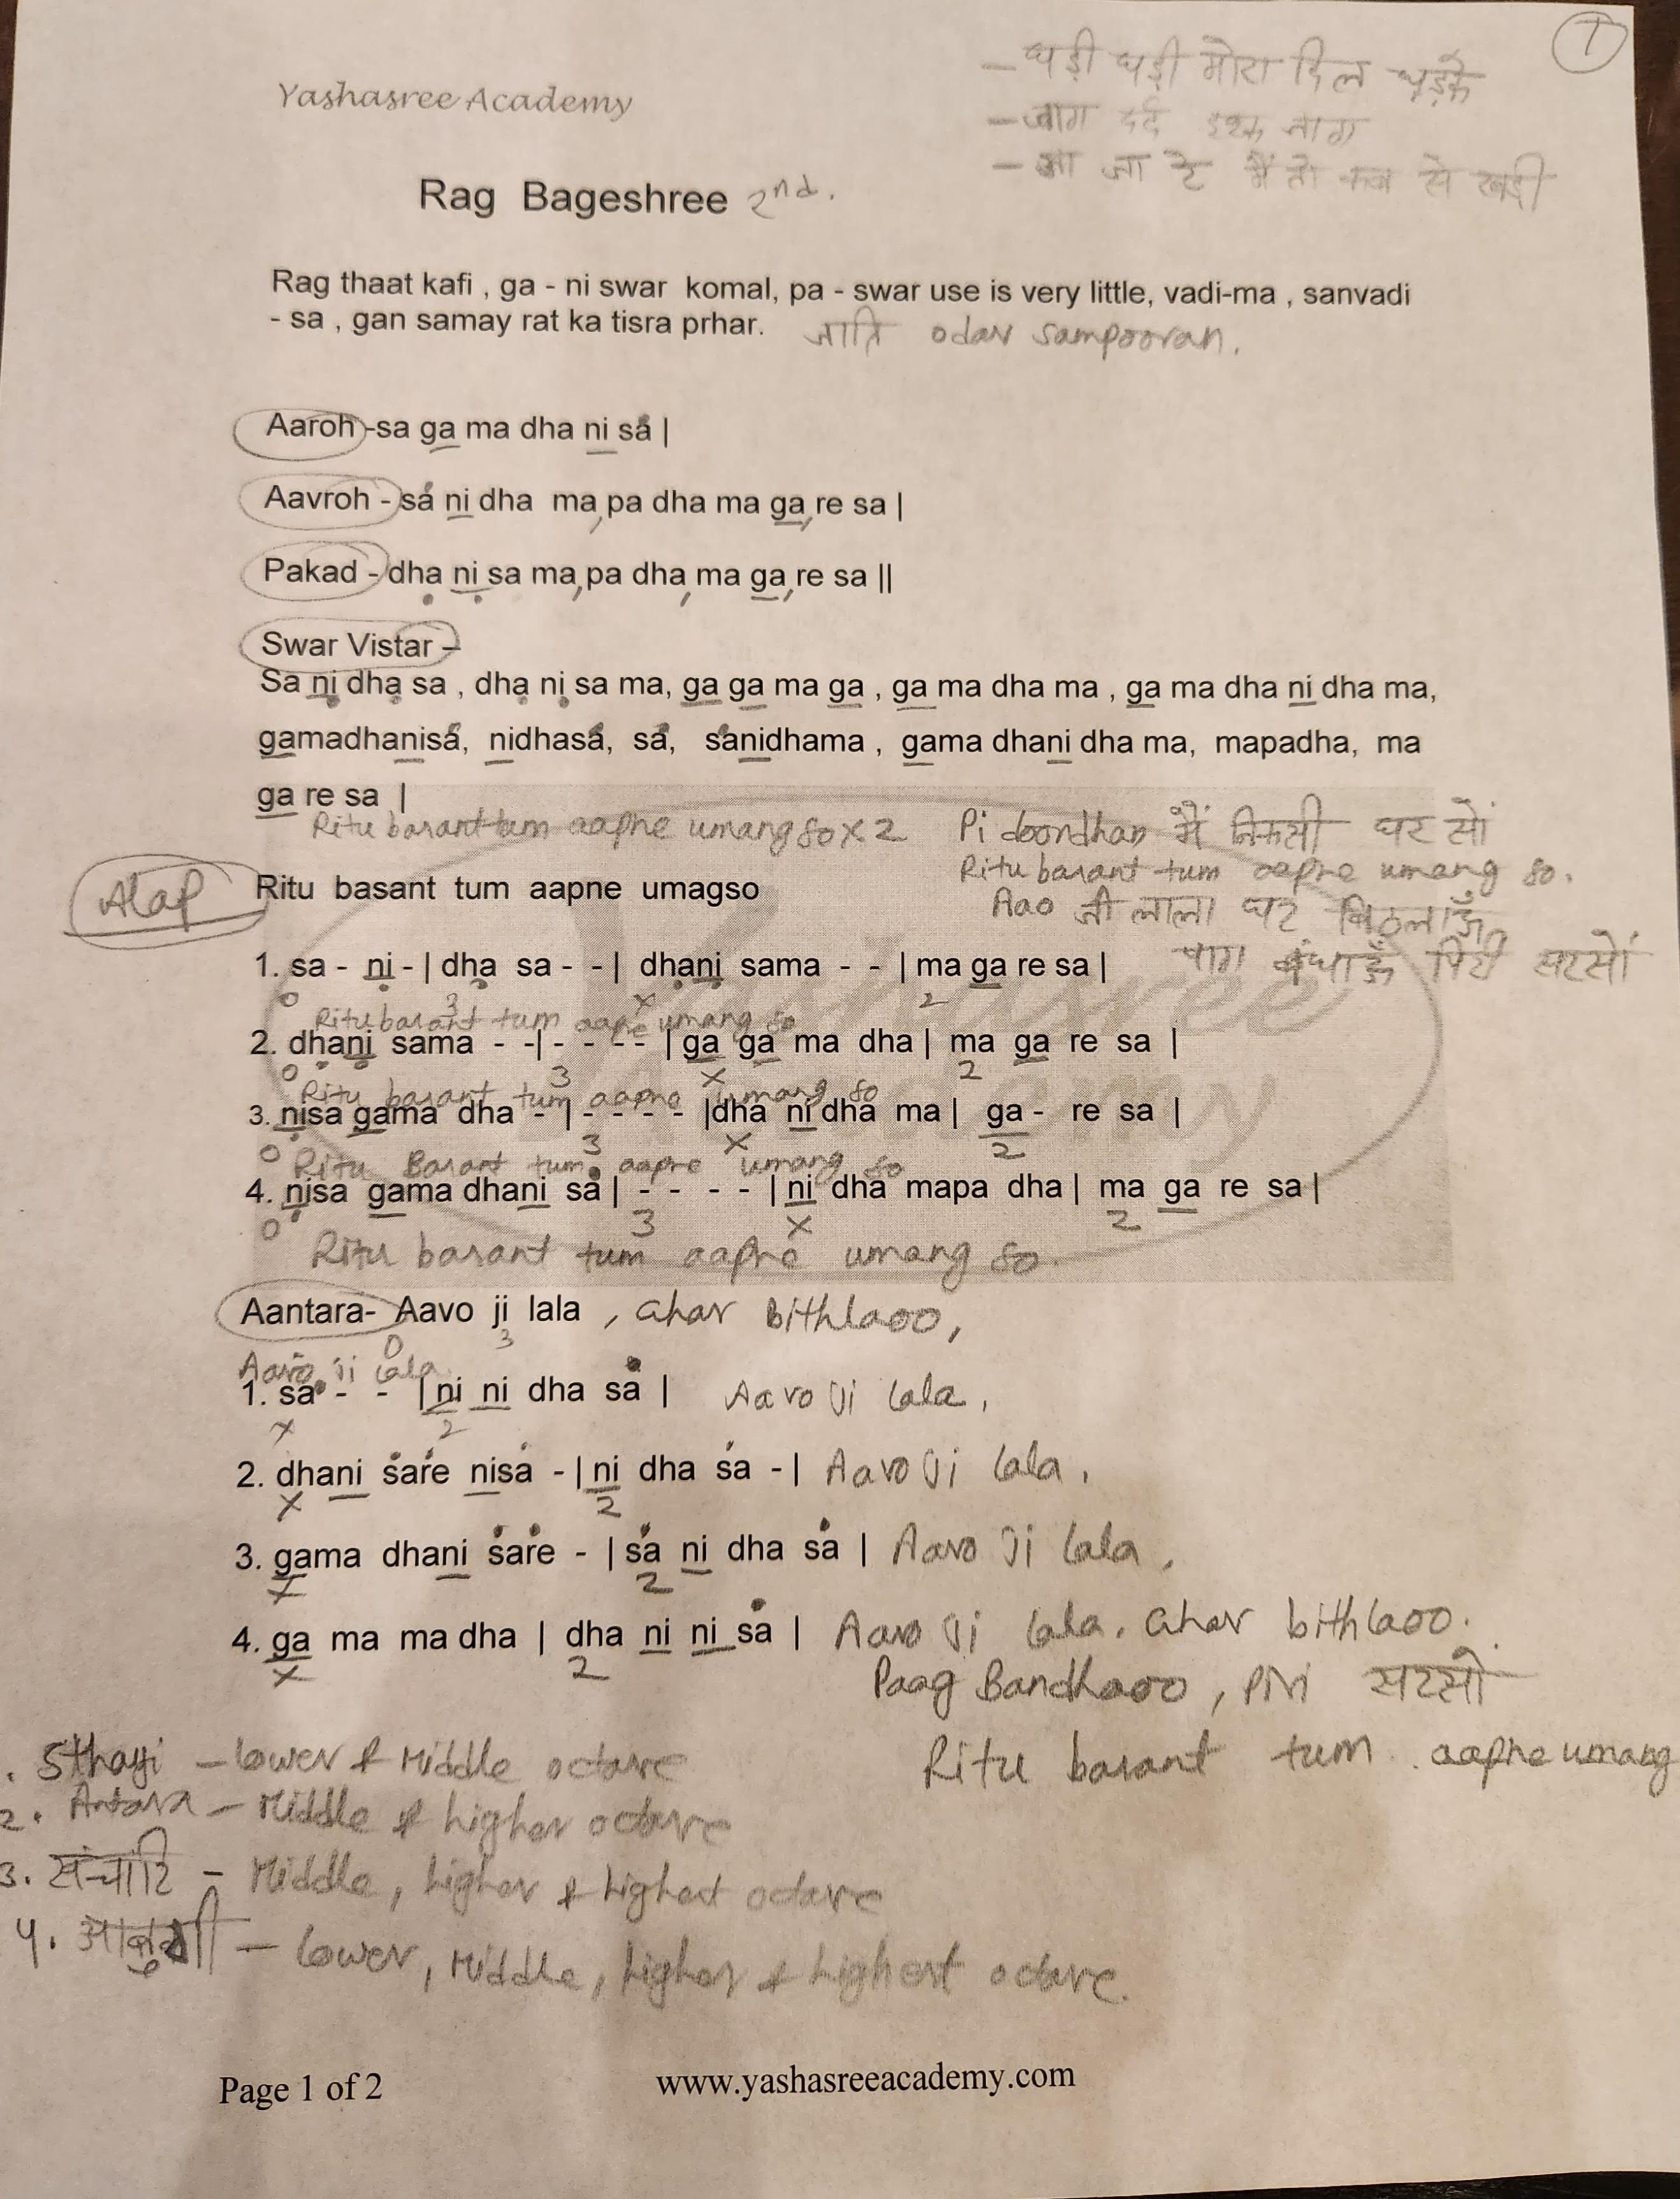 1
- घड़ी घड़ी मोरा दिल धड़के
- जाग दर्द इश्क जाग
- आ जा रे मैं तो कब से खड़ी
Yashasree Academy
Rag Bageshree 2nd.
Rag thaat kafi , ga - ni swar komal, pa - swar use is very little, vadi-ma , sanvadi
- sa , gan samay rat ka tisra prhar. जाति odav sampooran.
Aaroh -sa ga ma dha ni sa |
Aavroh - sa ni dha ma, pa dha ma ga, re sa |
Pakad - dha ni sa ma, pa dha, ma ga, re sa ||
Swar Vistar –
Sa ni dha sa , dha ni sa ma, ga ga ma ga , ga ma dha ma , ga ma dha ni dha ma,
gamadhanisa, nidhasa, sa, sanidhama , gama dhani dha ma, mapadha, ma
ga re sa |
Ritu basant tum aapne umang so x 2 Pi doondhan मैं निकसी घर सों
Ritu basant tum aapne umang so.
Alap Ritu basant tum aapne umagso
Aao जी लाला घर बिठलाऊँ
1. sa - ni - | dha sa - - | dhani sama - - | ma ga re sa | पाग बंधाऊँ पिरी सरसों
0 3 x 2
Ritu basant tum aapne umang so
2. dhani sama - -| - - - - | ga ga ma dha | ma ga re sa |
0 3 x 2
Ritu basant tum aapne umang so
3. nisa gama dha - | - - - - |dha ni dha ma | ga - re sa |
0 3 x 2
Ritu Basant tum aapne umang so
4. nisa gama dhani sa | - - - - | ni dha mapa dha | ma ga re sa |
0 3 x 2
Ritu basant tum aapne umang so.
Aantara- Aavo ji lala , Ghar bithlaoo,
0 3
Aavo ji lala
1. sa - - | ni ni dha sa | Aavo ji lala,
x 2
2. dhani sare nisa - | ni dha sa - | Aavo ji lala,
x 2
3. gama dhani sare - | sa ni dha sa | Aavo ji lala,
x 2
4. ga ma ma dha | dha ni ni sa | Aavo ji lala, Ghar bithlaoo.
x 2
Paag Bandhaoo, Piri सरसों
Ritu basant tum aapne umang
. Sthayi – Lower & Middle octave
2. Antara – Middle & higher octave
3. संचारि – Middle, higher & highest octave
4. – Lower, Middle, higher & highest octave.
Page 1 of 2 www.yashasreeacademy.com